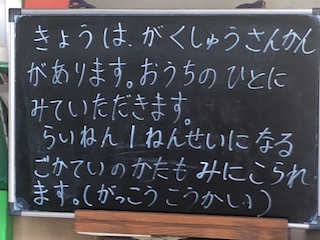 きょうは、がくしゅうさんかん
があります。おうちのひとに
みていただきます。
らいねん1ねんせいになる
ごかていのかたもみにこられ
ます。(がっこうこうかい)